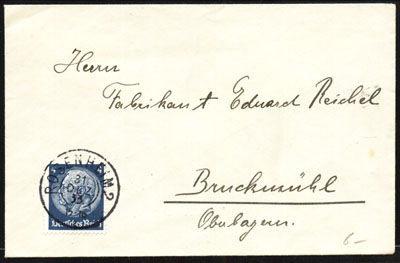 Herrn
Fabrikant Eduard Reichel
Bruckmühl
Oberbayern.
ROSENHEIM 2
31
DEZ
33
Deutsches Reich
6-